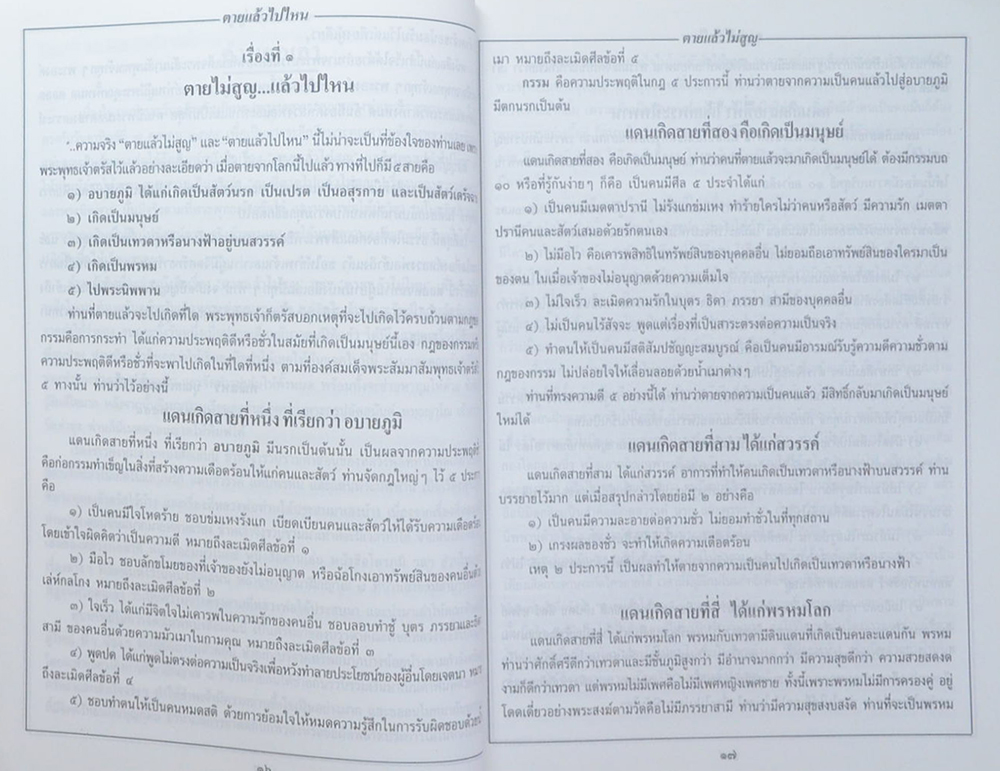 ตายแล้วไปไหน
เรื่องที่ ๑
ตายไม่สูญ...แล้วไปไหน
"..ความจริง “ตายแล้วไม่สูญ” และ “ตายแล้วไปไหน” นี้ไม่น่าจะเป็นที่ข้องใจของท่านเลย
พระพุทธเจ้าตรัสไว้แล้วอย่างละเอียดว่า เมื่อตายจากโลกนี้ไปแล้ว ทางที่ไปก็มี ๕ สายคือ
๑) อบายภูมิ ได้แก่เกิดเป็นสัตว์นรก เป็นเปรต เป็นอสุรกาย และเป็นสัตว์เดรัจฉาน
๒) เกิดเป็นมนุษย์
๓) เกิดเป็นเทวดาหรือนางฟ้าอยู่บนสวรรค์
๔) เกิดเป็นพรหม
๕) ไปพระนิพพาน
ท่านที่ตายแล้วจะไปเกิดที่ใด พระพุทธเจ้าก็ตรัสบอกเหตุที่จะไปเกิดไว้ครบถ้วนตามกฎของ
กรรมคือการกระทำ ได้แก่ความประพฤติดีหรือชั่วในสมัยที่เกิดเป็นมนุษย์นี้เอง กฎของกรรมคือ
ความประพฤติดีหรือชั่วที่จะพาไปเกิดในที่ใดที่หนึ่ง ตามที่องค์สมเด็จพระสัมมาสัมพุทธเจ้าตรัส
๕ ทางนั้น ท่านว่าไว้อย่างนี้
แดนเกิดสายที่หนึ่ง ที่เรียกว่า อบายภูมิ
แดนเกิดสายที่หนึ่ง ที่เรียกว่า อบายภูมิ มีนรกเป็นต้นนั้น เป็นผลจากความประพฤติ
คือก่อกรรมทำเข็ญในสิ่งที่สร้างความเดือดร้อนให้แก่คนและสัตว์ ท่านจัดกฎใหญ่ๆ ไว้ ๕ ประการ
คือ
๑) เป็นคนมีใจโหดร้าย ชอบข่มเหงรังแก เบียดเบียนคนและสัตว์ให้ได้รับความเดือดร้อน
โดยเข้าใจผิดคิดว่าเป็นความดี หมายถึงละเมิดศีลข้อที่ ๑
๒) มือไว ชอบลักขโมยของที่เจ้าของยังไม่อนุญาต หรือฉ้อโกงเอาทรัพย์สินของคนอื่นด้วย
เล่ห์กลโกง หมายถึงละเมิดศีลข้อที่ ๒
๓) ใจเร็ว ได้แก่มีจิตใจไม่เคารพในความรักของคนอื่น ชอบลอบทำชู้ บุตร ภรรยาและ
สามี ของคนอื่นด้วยความมัวเมาในกามคุณ หมายถึงละเมิดศีลข้อที่ ๓
๔) พูดปด ได้แก่พูดไม่ตรงต่อความเป็นจริงเพื่อหวังทำลายประโยชน์ของผู้อื่นโดยเจตนา หมาย
ถึงละเมิดศีลข้อที่ ๔
๕) ชอบทำตนให้เป็นคนหมดสติ ด้วยการย้อมใจให้หมดความรู้สึกในการรับผิดชอบด้วย
๑๖
ตายแล้วไม่สูญ
เมา หมายถึงละเมิดศีลข้อที่ ๕
กรรม คือความประพฤติในกฎ ๕ ประการนี้ ท่านว่าตายจากความเป็นคนแล้วไปสู่อบายภูมิ
มีตกนรกเป็นต้น
แดนเกิดสายที่สอง คือเกิดเป็นมนุษย์
แดนเกิดสายที่สอง คือเกิดเป็นมนุษย์ ท่านว่าคนที่ตายแล้วจะมาเกิดเป็นมนุษย์ได้ ต้องมีกรรมบถ
๑๐ หรือที่รู้กันง่ายๆ ก็คือ เป็นคนมีศีล ๕ ประจำได้แก่
๑) เป็นคนมีเมตตาปรานี ไม่รังแกข่มเหง ทำร้ายใครไม่ว่าคนหรือสัตว์ มีความรัก เมตตา
ปรานีคนและสัตว์เสมอด้วยรักตนเอง
๒) ไม่มือไว คือเคารพสิทธิในทรัพย์สินของบุคคลอื่น ไม่ยอมถือเอาทรัพย์สินของใครมาเป็น
ของตน ในเมื่อเจ้าของไม่อนุญาตด้วยความเต็มใจ
๓) ไม่ใจเร็ว ละเมิดความรักในบุตร ธิดา ภรรยา สามีของบุคคลอื่น
๔) ไม่เป็นคนไร้สัจจะ พูดแต่เรื่องที่เป็นสาระตรงต่อความเป็นจริง
๕) ทำตนให้เป็นคนมีสติสัมปชัญญะสมบูรณ์ คือเป็นคนมีอารมณ์รับรู้ความดีความชั่วตาม
กฎของกรรม ไม่ปล่อยใจให้เลื่อนลอยด้วยน้ำเมาต่างๆ
ท่านที่ทรงความดี ๕ อย่างนี้ได้ ท่านว่าตายจากความเป็นคนแล้ว มีสิทธิ์กลับมาเกิดเป็นมนุษย์
ใหม่ได้
แดนเกิดสายที่สาม ได้แก่สวรรค์
แดนเกิดสายที่สาม ได้แก่สวรรค์ อาการที่ทำให้คนเกิดเป็นเทวดาหรือนางฟ้าบนสวรรค์ ท่าน
บรรยายไว้มาก แต่เมื่อสรุปกล่าวโดยย่อมี ๒ อย่างคือ
๑) เป็นคนมีความละอายต่อความชั่ว ไม่ยอมทำชั่วในที่ทุกสถาน
๒) เกรงผลของชั่ว จะทำให้เกิดความเดือดร้อน
เหตุ ๒ ประการนี้ เป็นผลทำให้ตายจากความเป็นคนไปเกิดเป็นเทวดาหรือนางฟ้า
แดนเกิดสายที่สี่ ได้แก่พรหมโลก
แดนเกิดสายที่สี่ ได้แก่พรหมโลก พรหมกับเทวดามีดินแดนที่เกิดเป็นคนละแดนกัน พรหม
ท่านว่าศักดิ์ศรีดีกว่าเทวดาและมีชั้นภูมิสูงกว่า มีอำนาจมากกว่า มีความสุขดีกว่า ความสวยสดงด
งามก็ดีกว่าเทวดา แต่พรหมไม่มีเพศคือไม่มีเพศหญิงเพศชาย ทั้งนี้เพราะพรหมไม่มีการครองคู่ อยู่
โดดเดี่ยวอย่างพระสงฆ์ตามวัดคือไม่มีภรรยาสามี ท่านว่ามีความสุขสงบสงัด ท่านที่จะเป็นพรหม
๑๗